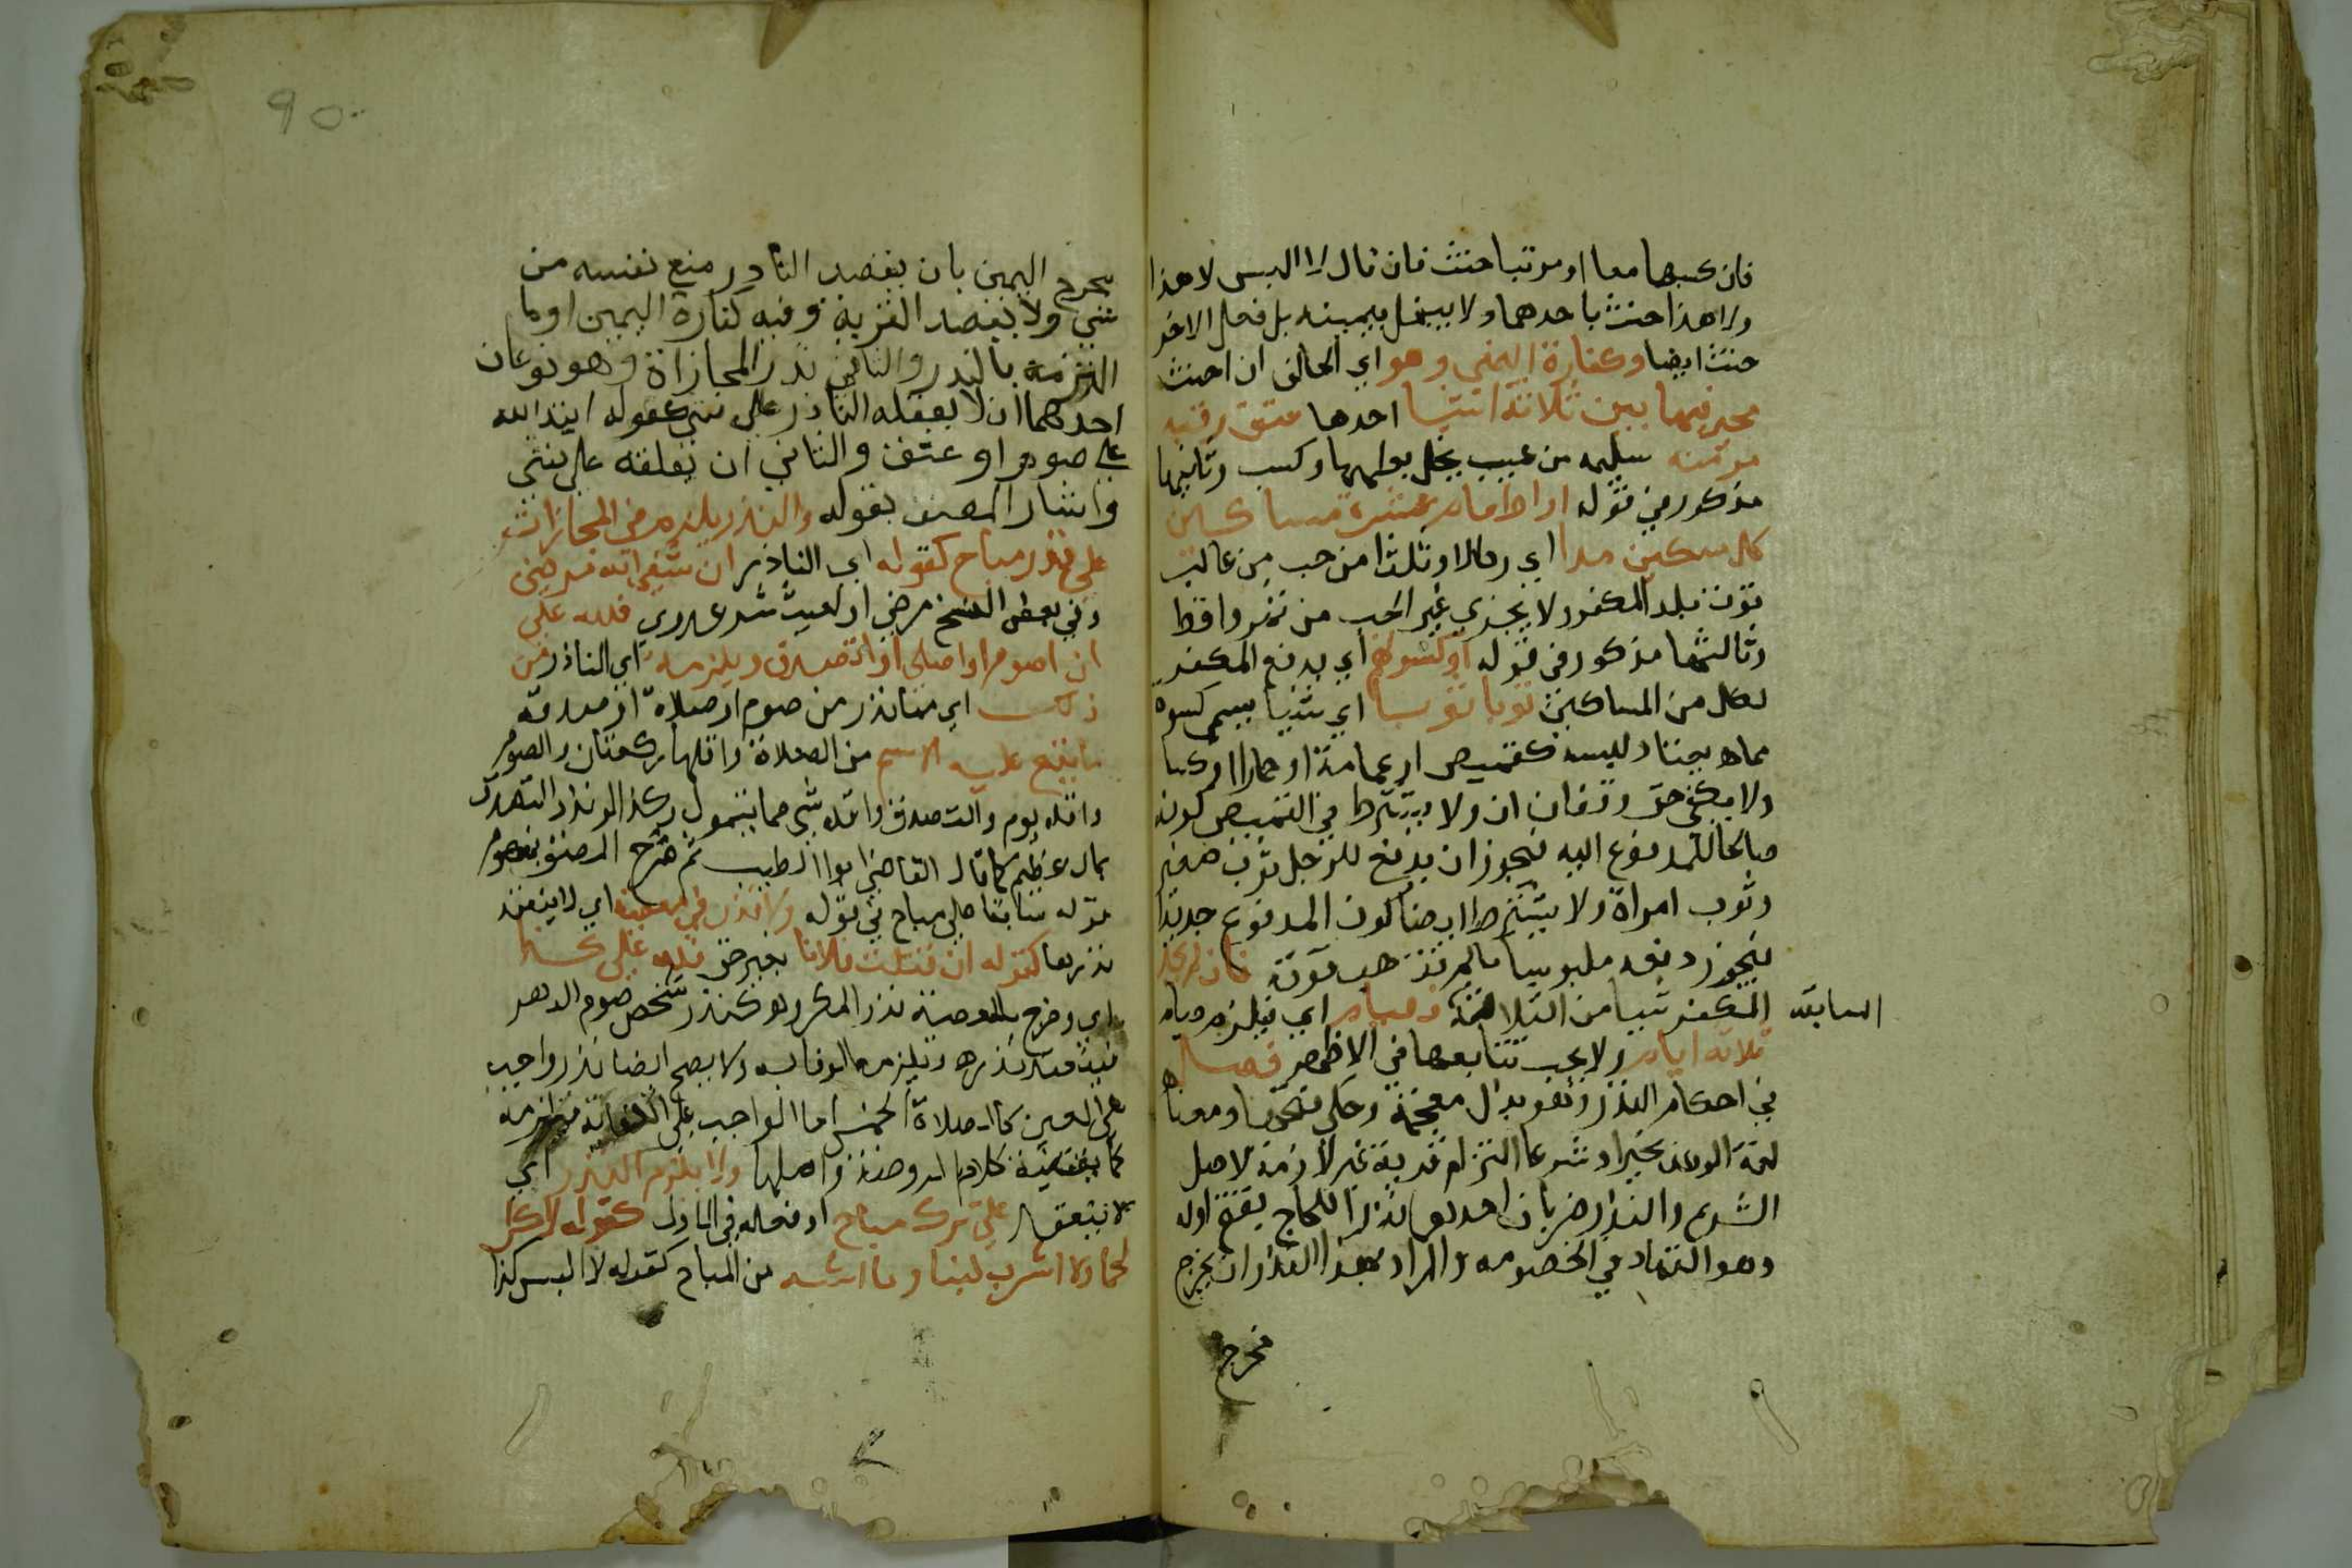 فان لبسهما معا او مرتبا حنث فان قال لا البس لا هذا
ولا هذا حنث باحدهما ولا ينحل يمينه بل فعل الاخر
حنث ايضا وكفارة اليمين وهو اي الحالف ان احنث
مخير فيها بين ثلاثة اشيا احدها عتق رقبة
مومنه سليمه من عيب يخل بعملها وكسب وثانيها
مذكور في قوله او اطعام عشرة مساكين
كل مسكين مدا اي رطلا وثلثا من حب من غالب
قوت بلد المكفر ولا يجزي غير الحب من تمر واقط
وثالثها مذكور في قوله او كسوتهم اي يدفع المكفر
لكل من المساكين ثوبا ثوبا اي شيا يسمى كسوة
مما يعتاد لبسه كقميص او عمامة او خمار او كسا
ولا يكفي خف وقفازان ولا يشترط في القميص كونه
صالحا للمدفوع اليه فيجوز ان يدفع للرجل ثوب صغير
وثوب امراة ولا يشترط ايضا كون المدفوع جديدا
فيجوز دفعه ملبوسا ما لم تذهب قوته فان لم يجد
المكفر شيا من الثلاثة السابقه فصيام اي فيلزمه صيام
ثلاثة ايام ولا يجب تتابعها في الاظهر فصل
في احكام النذر وهو بذال معجمة وحكي فتحها ومعناه
لغة الوعد بخير او شر وشرعا التزام قربة غير لازمة لاصل
الشرع والنذر ضربان احدهما نذر اللجاج بفتح اوله
وهو التماد في الخصومه والمراد بهذا النذر ان يخرج
مخرج
٩٥
مخرج اليمين بان يقصد الناذر منع نفسه من
شي ولا يقصد القربة وفيه كفارة اليمين او ما
التزمه بالنذر والثاني نذر المجازاة وهو نوعان
احدهما ان لا يعلقه الناذر على شي كقوله ابتدا لله
علي صوم او عتق والثاني ان يعلقه على شي
واشار المصنف بقوله والنذر يلزم في المجازات
على نذر مباح كقوله اي الناذر ان شفى الله مريضي
وفي بعض النسخ مرضي او كفيت شر عدوي فلله علي
ان اصوم او اصلي او اتصدق ويلزمه اي الناذر من
ذلك اي مما نذر من صوم او صلاة او صدقة
ما يقع عليه الاسم من الصلاة واقلها ركعتان والصوم
واقله يوم والتصدق واقله شي مما يتمول وكذا لو نذر التصدق
بمال عظيم كما قال القاضي ابو الطيب ثم صرح المصنف بمفهوم
قوله سابقا على مباح في قوله ولا نذر في معصية اي لا ينعقد
نذرها كقوله ان قتلت فلانا بغير حق فلله علي كذا
اي وخرج بالمعصية نذر المكروه كنذر شخص صوم الدهر
فينعقد نذره ويلزمه الوفا به ولا يصح ايضا نذر واجب
على العين كالصلاة الخمس اما الواجب على الكفاية فيلزمه
كما يقتضيه كلام الروضة واصلها ولا يلزم النذر اي
لا ينعقد على ترك مباح او فعله فالاول كقوله لا اكل
لحما ولا اشرب لبنا وما اشبه من المباح كقوله لا البس كذا